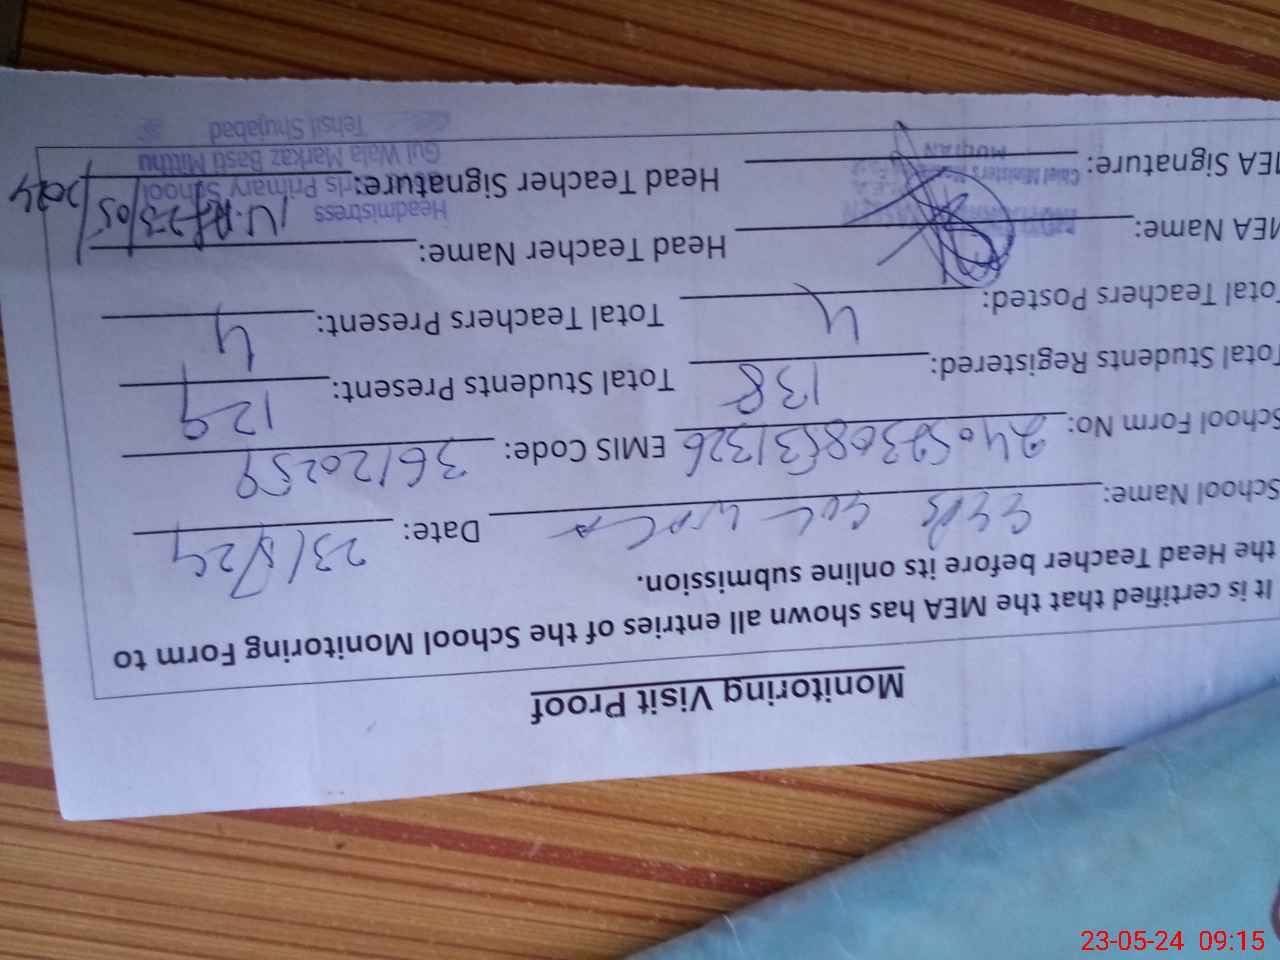 Monitoring Visit Proof
It is certified that the MEA has shown all entries of the School Monitoring Form to
the Head Teacher before its online submission.
School Name: GGPS Gul Wala Date: 23/5/24
School Form No: EMIS Code: 36120259
Total Students Registered: 138 Total Students Present: 129
Total Teachers Posted: 4 Total Teachers Present: 4
MEA Name: Head Teacher Name:
MEA Signature: Head Teacher Signature: 23/05/2024
Headmistress
Girls Primary School
Gul Wala Markaz Basti Mitthu
Tehsil Shujabad
23-05-24 09:15